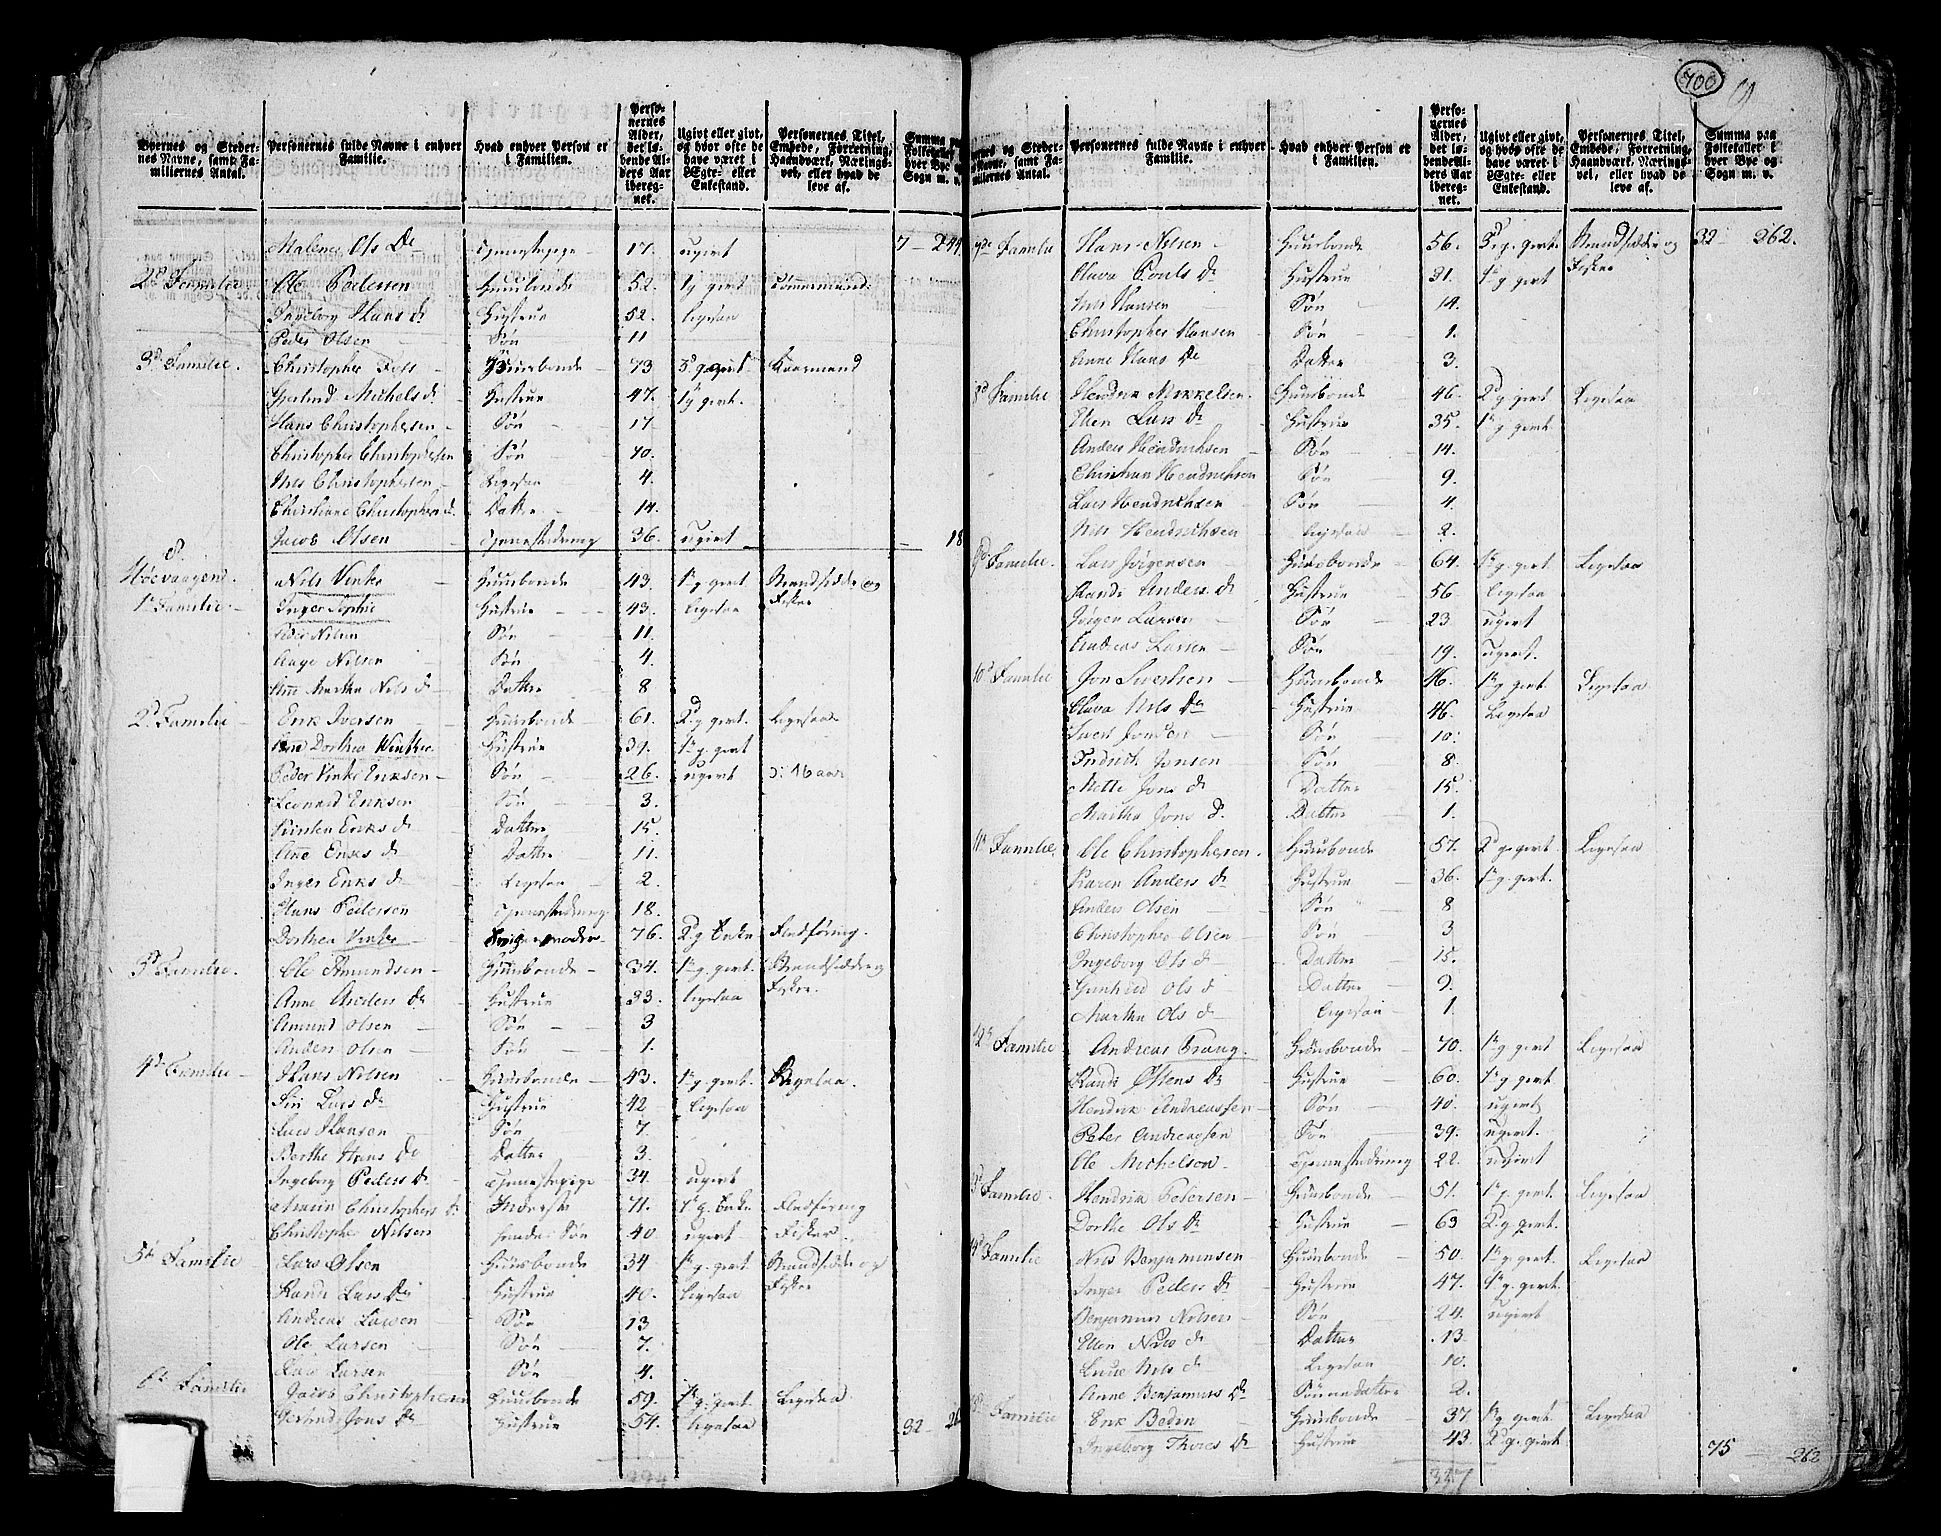 700
Byernes og Stedernes Navne, samt Familiernes Antal. | Personernes fulde Navne i enhver Familie. | Hvad enhver Person er i Familien. | Personernes Alder, det løbende Alders Aar iberegnet. | Ugivt eller givt, og hvor ofte de have været i Ægte- eller Enkestand. | Personernes Titel, Embede, Forretning, Haandværk, Næringsvei, eller hvad de leve af.
Malene Ols Dr | Tjenestepige | 17. | ugivt | 7 - 244
2d Familie | Ole Pedersen | Huusbonde | 52. | 1g givt | Tømmermand
Ingeborg Hans dr | Hustrue | 52. | ligesaa
Peder Olsen | Søn | 11
3d Familie. | Christopher | Huusbonde | 73 | 3d g givt | Kaarmand
Michels d. | Hustrue | 47. | 1g givt.
Hans Christophersen | Søn | 17
Christopher Christophersen | Søn | 10.
Nils Christophersen | Ligesaa | 4.
Christiane Christophers d. | Datter | 14.
Jacob Olsen | Tjenestedreng | 36. | ugivt | 18
8.
1te Familie | Nils Vinke | Huusbonde | 43. | 1te g givt | Strandsidder og Fisker
Inger Sophie | Hustrue | 43. | ligesaa
Peder Nilsen | Søn | 11.
Aage Nilsen | Søn | 4.
Ane Marthe Nils d | Datter | 8
2d Familie | Erik Iversen | Huusbonde | 61. | 2d g givt. | Ligesaa
Ane Dorthea Winke | Hustrue | 31. | 1te g. givt
Peder Vinke Eriksen | Søn | 26. | ugivt | 16 aar
Leonard Eriksen | Søn | 3.
Kirsten Eriks d | Datter | 15
Ane Eriks d | Datter | 11.
Inger Eriks d | Ligesaa | 2.
Hans Pedersen | Tjenestedreng | 18.
Dorthea Vinke | Svigermoder | 76. | 2d g Enke | Fledføring.
3d Familie. | Ole Amundsen | Huusbonde | 34. | 1te g. givt. | Strandsidder og Fisker
Anne Anders dr | Hustrue | 33. | ligesaa
Amund Olsen | Søn | 3
Anders Olsen | Søn | 1.
4de Familie | Hans Nilsen | Huusbonde | 43. | 1te g givt. | Ligesaa.
Siri Lars dr | Hustrue | 42 | ligesaa
Lars Hansen | Søn | 7.
Berthe Hans dr | Datter | 3.
Ingeborg Peders dr | Tjenestepige | 34. | ugivt
Christophers dr | Inderste | 71. | 1te g. Enke | Fledføring
Christopher Nilsen | hendes Søn | 40 | ugivt | Fisker
5te Familie | Lars Olsen | Huusbonde | 34 | 1te g. givt | Strandsidder og Fisker
Randi Lars Dr | Hustrue | 40. | ligesaa
Andreas Larsen | Søn | 13
Ole Larsen | Søn | 7.
Lars Larsen | Søn | 4.
6te Familie | Jacob Christophersen | Huusbonde | 59. | 1te g. givt | Ligesaa
Gertrud Jons dr | Hustrue | 54. | ligesaa | 32 - 26
Byernes og Stedernes Navne, samt Familiernes Antal. | Personernes fulde Navne i enhver Familie. | Hvad enhver Person er i Familien. | Personernes Alder, det løbende Alders Aar iberegnet. | Ugivt eller givt, og hvor ofte de have været i Ægte- eller Enkestand. | Personernes Titel, Embede, Forretning, Haandværk, Næringsvei, eller hvad de leve af. | Summa paa Folketallet i hver Bye og Sogn m. v.
7de Familie | Hans Nilsen | Huusbonde | 56. | 3die g. givt | Strandsidder og Fisker | 32 262.
Olava Pouls dr | Hustrue | 31. | 1te g givt
Nils Hansen | Søn | 14.
Christopher Hansen | Søn | 1.
Anne Hans Dr | Datter | 3.
8d Familie | Hendrik Mikkelsen | Huusbonde | 46. | 2d g givt | Ligesaa
Ellen Lars dr | Hustrue | 35. | 1te g givt
Anders Hendrichsen | Søn | 14.
Christian Hendrichsen | Søn | 9.
Lars Hendrichsen | Søn | 4.
Nils Hendrichsen | Ligesaa | 2.
9de Familie | Lars Jörgensen | Huusbonde | 64. | 1te g. givt | Ligesaa
Randi Anders dr | Hustrue | 56. | Ligesaa
Jörgen Larsen | Søn | 23. | ugivt
Andreas Larsen | Søn | 19. | ugivt.
10d Familie | Jon Sivertsen | Huusbonde | 46. | 1te g givt. | Ligesaa
Olava Nils Dr | Hustrue | 46. | Ligesaa
Jonsen | Søn | 10.
Jonsen | Søn | 8.
Mette Jons d | Datter | 15.
Martha Jons d. | Datter | 1.
11te Familie. | Ole Christophersen. | Huusbonde | 57. | 2d g. givt | Ligesaa
Karen Anders dr | Hustrue | 36. | 1te g. givt.
Anders Olsen | Søn | 8
Christopher Olsen | Søn | 3
Ingeborg Ols d | Datter | 15.
Ols d | Datter | 9.
Martha Ols d | Ligesaa | 1.
12te Familie. | Andreas Trang. | Huusbonde | 70. | 1te g givt | Ligesaa
Randi Dr | Hustrue | 60. | 1te g givt
Hendrik Andreassen | Søn | 40. | ugivt
Peter Andreassen | Søn | 39. | ugivt.
Ole Michelsen. | Tjenestedreng | 22. | ugivt
Familie. | Hendrik Petersen | Huusbonde | 51. | 1te g. givt. | Ligesaa
Dorthe Ols dr | Hustrue | 63 | 2d g. givt.
14d Familie | Nils Benjaminsen | Huusbonde | 50. | 1te g. givt | Ligesaa
Inger Peders dr | Hustrue | 47. | 1te g. givt
Benjamin Nilsen | Søn | 24. | ugivt
Ellen Nils d | Datter | 13.
Nils d | Ligesaa | 10.
Anne Benjamins dr | Sønnedatter | 2.
Familie | Erik Boden | Huusbonde | 37. | 1te g. givt. | Ligesaa
Ingeborg Thores dr | Hustrue | 43. | 2d g. givt | 75 - 262
337